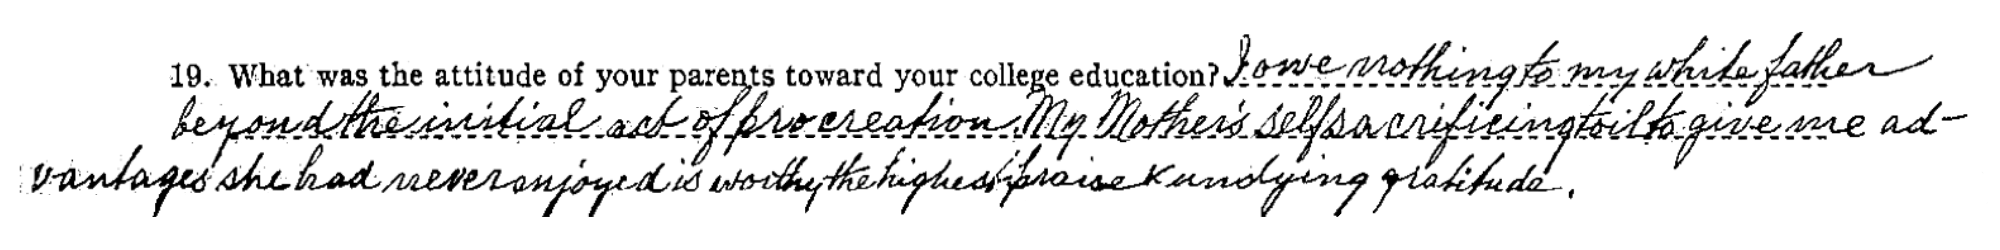 19. What was the attitude of your parents toward your college education? I owe nothing to my white father
beyond the initial act of procreation. My Mother's self sacrificing toil to give me ad-
vantages she had never enjoyed is worthy the highest praise & undying gratitude.